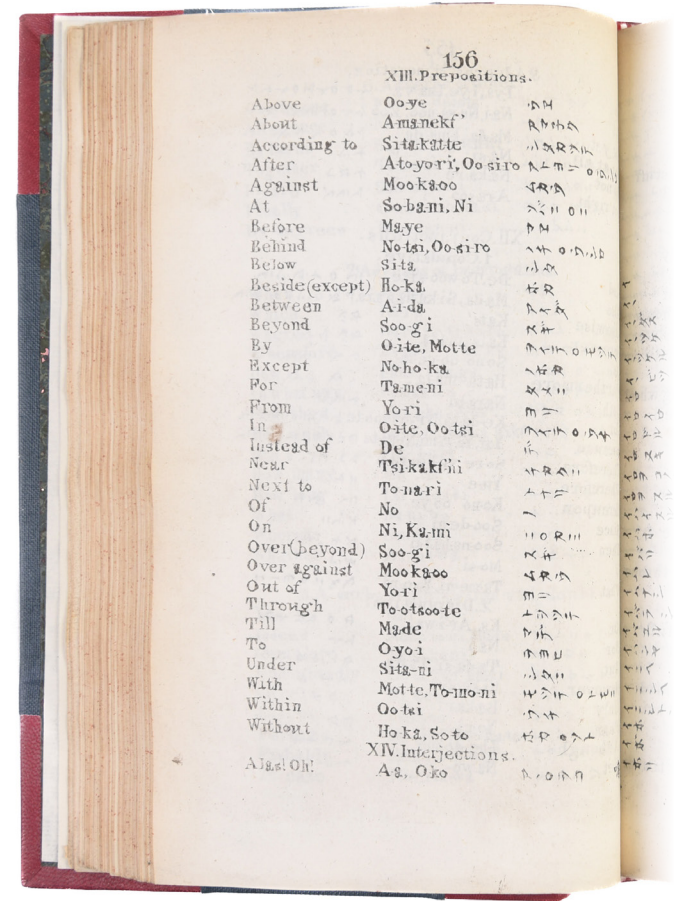 156
XIII. Prepositions.
Above Ooye ウエ
About Amanekf' アマネク
According to Sitakatte シタカツテ
After Atoyori', Oosiro アトヨリ
Against Mookaoo ムカウ
At Sobani, Ni ソバニ ○ ニ
Before Maye マエ
Behind Notsi, Oosiro ノチ ○ ウシロ
Below Sita シタ
Beside (except) Hoka ホカ
Between Aida アイダ
Beyond Soogi スギ
By Oite, Motte ヲイテ ○ モツテ
Except Nohoka ノホカ
For Tameni タメニ
From Yori ヨリ
In Oite, Ootsi ヲイテ ○ ウチ
Instead of De デ
Near Tsikakf'ni チカクニ
Next to Tonari トナリ
Of No ノ
On Ni, Kami ニ ○ カミ
Over (beyond) Soogi スギ
Over against Mookaoo ムカウ
Out of Yori ヨリ
Through Tootsoote トツツテ
Till Made マデ
To Oyoi ヲヨヒ
Under Sita-ni シタニ
With Motte, Tomoni モツテ ○ トモニ
Within Ootsi ウチ
Without Hoka, Soto ホカ ○ ソト
XIV. Interjections.
Alas! Oh! Aa, Oko